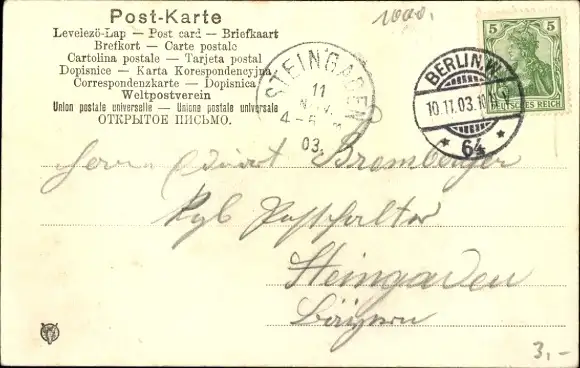 Post-Karte
Levelezö-Lap — Post card — Briefkaart
Brefkort — Carte postale
Cartolina postale — Tarjeta postal
Dopisnice — Karta Korespondencyjna
Correspondenzkarte — Dopisnica
Weltpostverein
Union postale universelle — Unione postale universale
ОТКРЫТОЕ ПИСЬМО.
1000.
STEINGADEN
11
NOV.
4-5
03.
BERLIN.W.
10.11.03.
* 64 *
5 5
DEUTSCHES REICH
Herrn Bromberger
Kgl Posthalter
Steingaden
Bayern
3,-